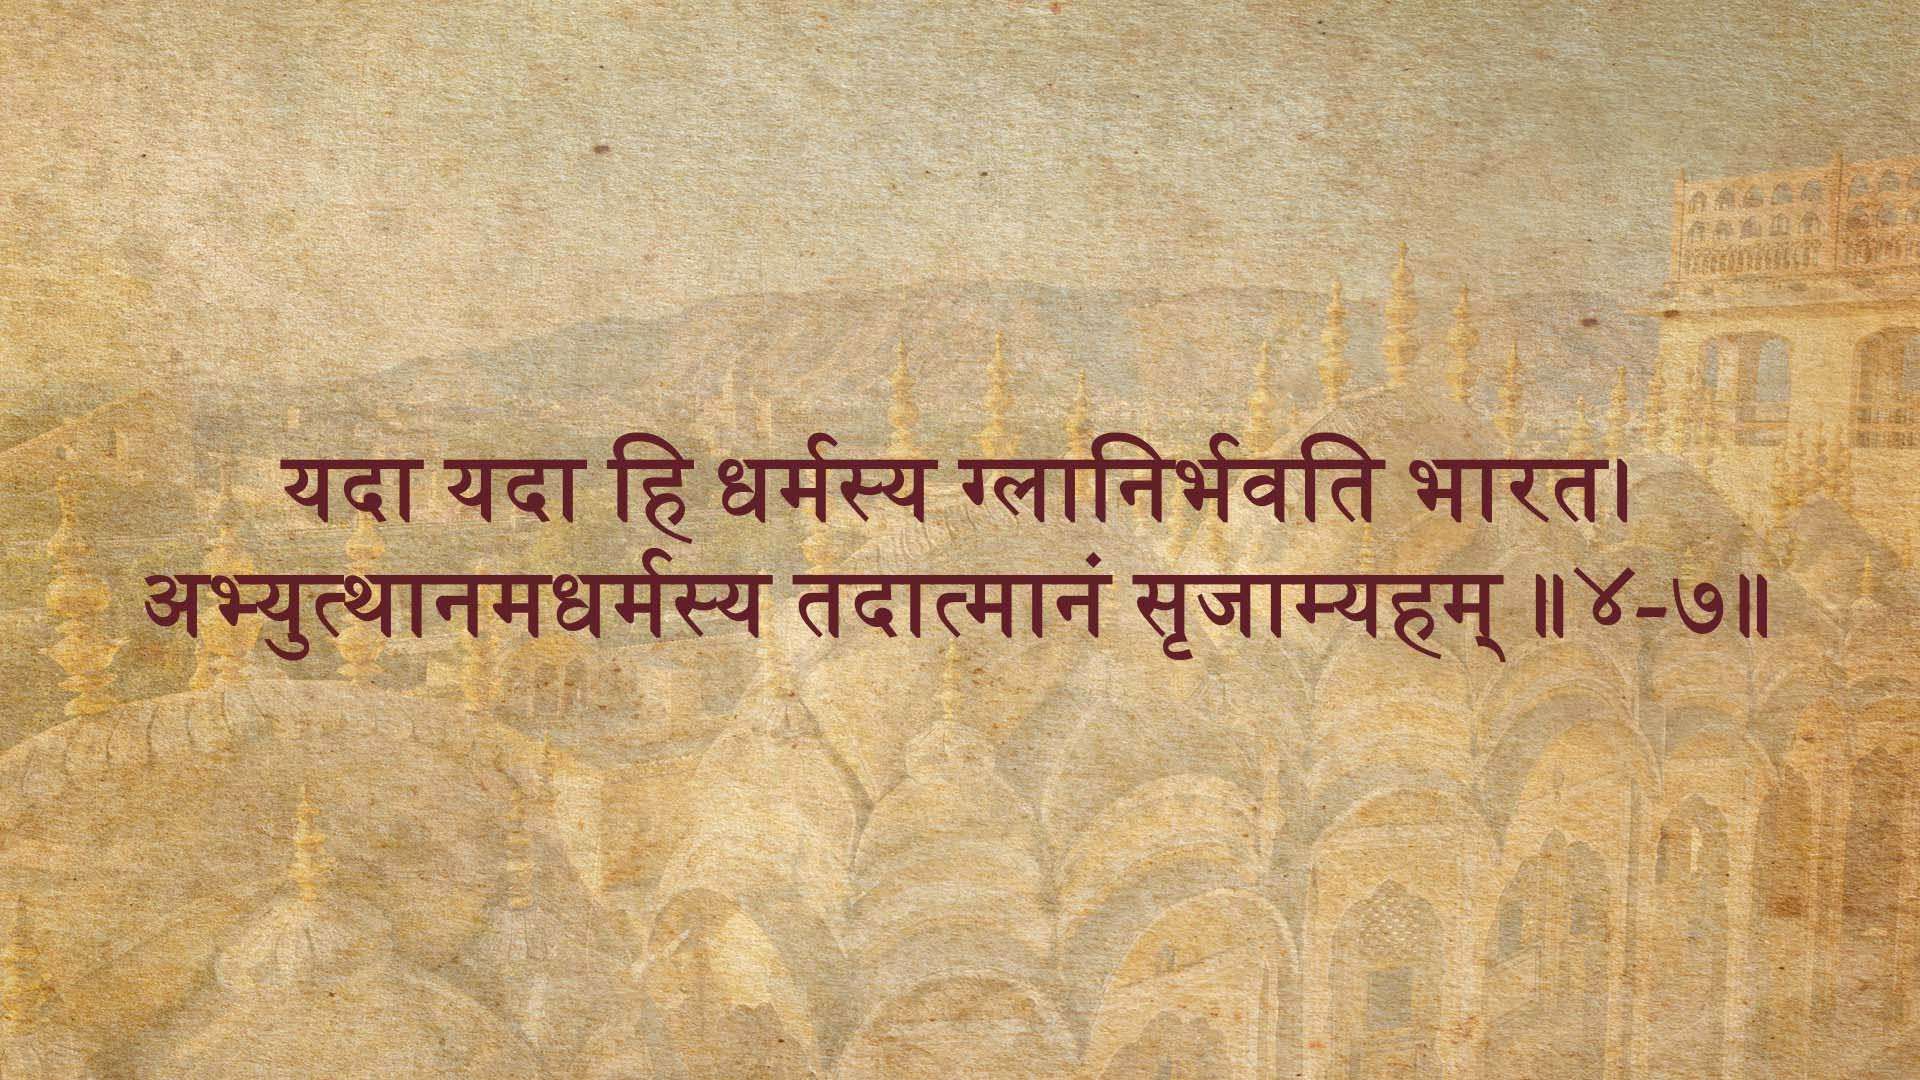 यदा यदा हि धर्मस्य ग्लानिर्भवति भारत।
अभ्युत्थानमधर्मस्य तदात्मानं सृजाम्यहम् ॥४-७॥